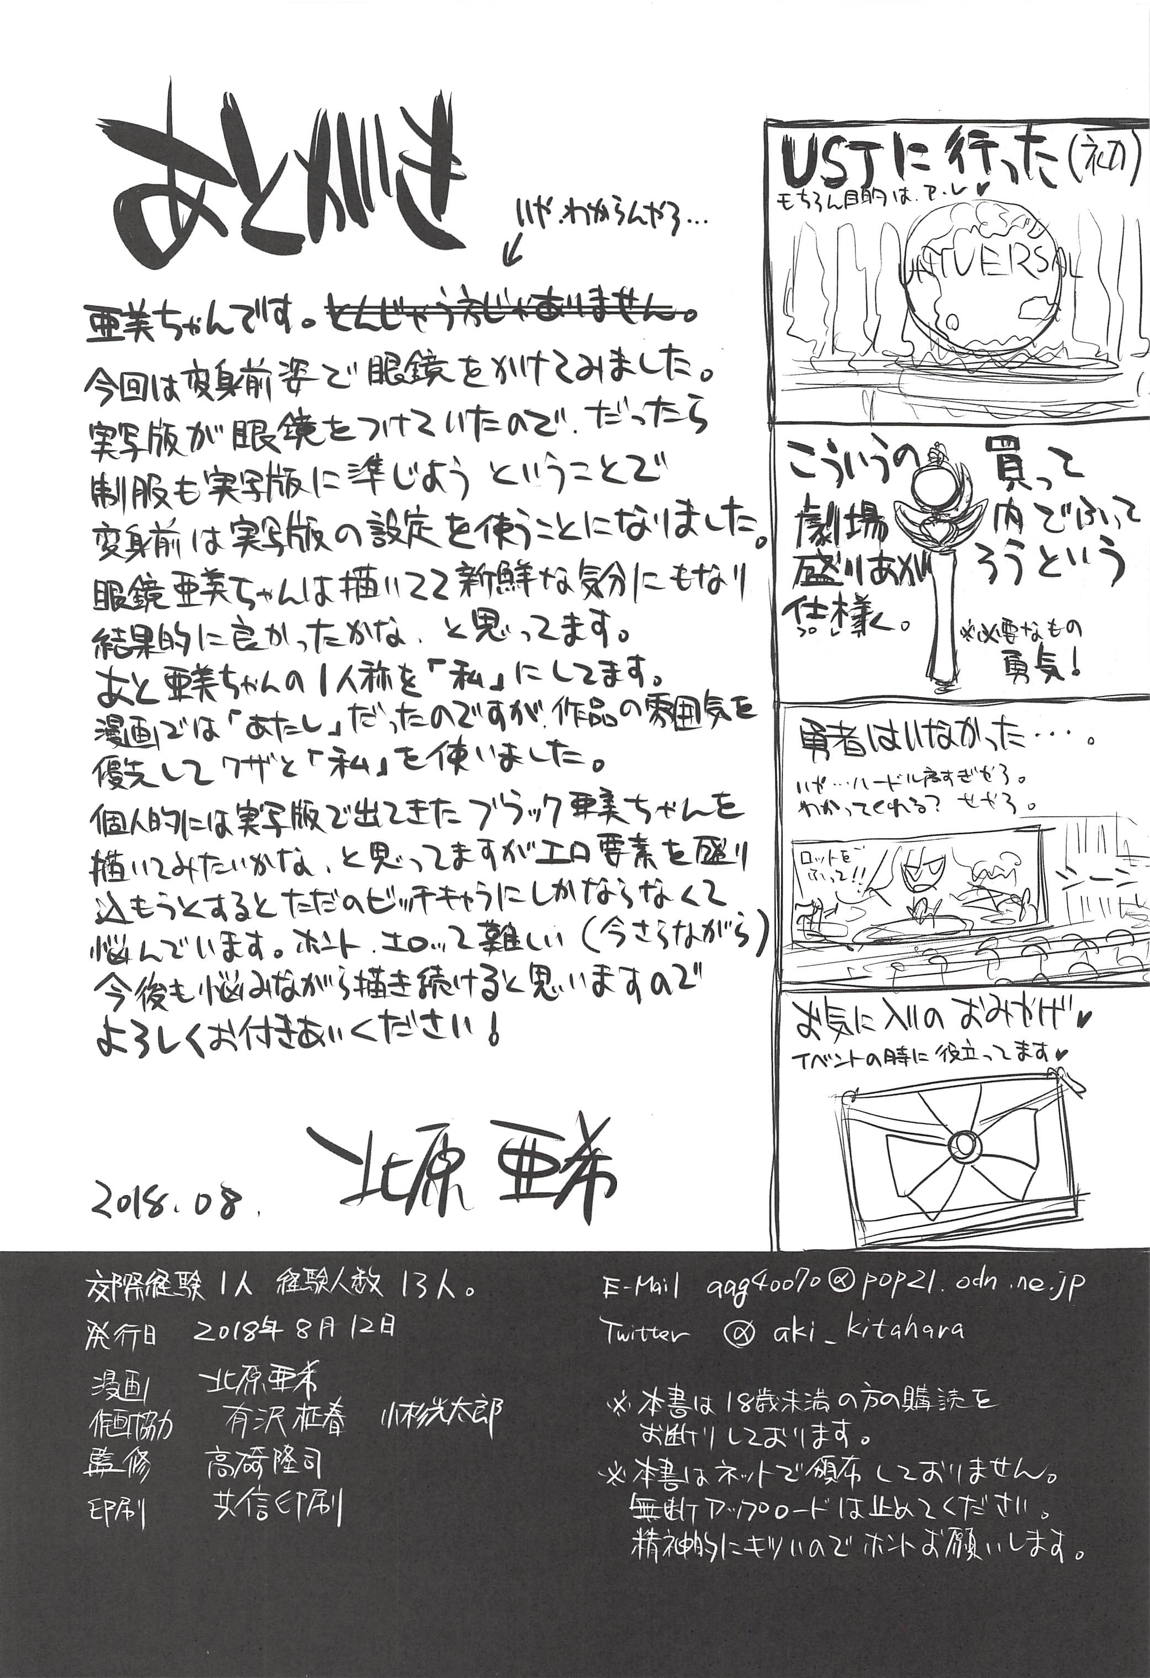 あとがき
いや、わからんやろ…
亜美ちゃんです。とんじゃう方じゃありません。
今回は変身前姿で眼鏡をかけてみました。
実写版が眼鏡をつけていたので、だったら
制服も実写版に準じよう ということで
変身前は実写版の設定を使うことになりました。
眼鏡亜美ちゃんは描いてて新鮮な気分にもなり
結果的に良かったかな、と思ってます。
あと亜美ちゃんの1人称を「私」にしてます。
漫画では「あたし」だったのですが、作品の雰囲気を
優先してワザと「私」を使いました。
個人的には実写版で出てきたブラック亜美ちゃんを
描いてみたいかな、と思ってますがエロ要素を盛り
込もうとするとただのビッチキャラにしかならなくて
悩んでいます。ホント、エロって難しい(今さらながら)
今後も悩みながら描き続けると思いますので
よろしくお付きあいください!
2018.08.
北原亜希
USJに行った(初)
もちろん目的は
UNIVERSAL
こういうの
買って
劇場
内でふって
盛りあが
ろうという
仕様。
※必要なもの
勇気!
勇者はいなかった…。
いや…ハードル高すぎやろ。
わかってくれる? せやろ。
ロットを
ふって!!
シーン
お気に入りのおみやげ♥
イベントの時に役立ってます♥
交際経験1人 経験人数13人。
発行日 2018年8月12日
漫画 北原亜希
作画協力 有沢征春 小杉光太郎
監修 高崎隆司
印刷 共信印刷
E-Mail aag40070@pop21.odn.ne.jp
Twitter @aki_kitahara
※本書は18歳未満の方の購読を
お断りしております。
※本書はネットで頒布しておりません。
無断アップロードは止めてください。
精神的にキツいのでホントお願いします。